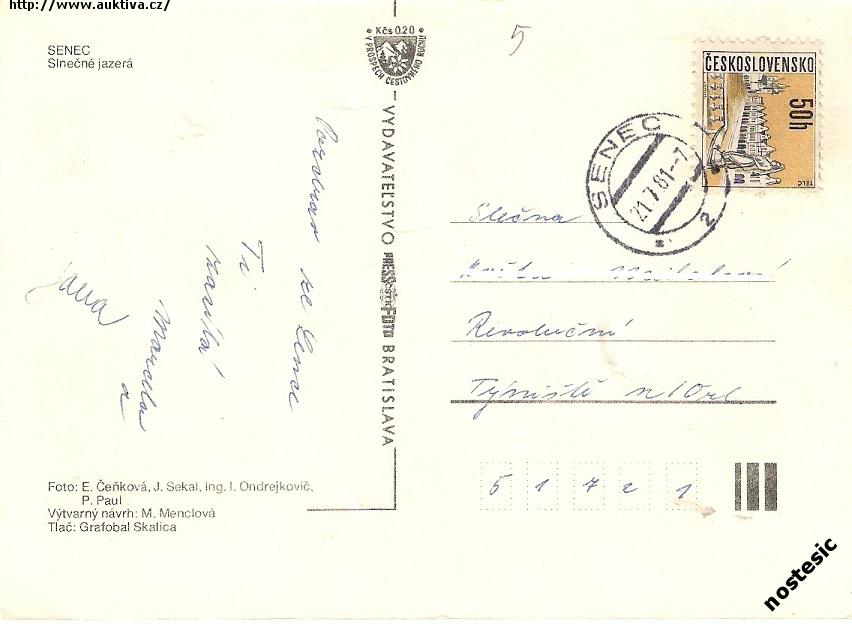 http://www.auktiva.cz/
SENEC
Slnečné jazerá
Kčs 0.20
V PROSPECH CESTOVNÉHO RUCHU
5
ČESKOSLOVENSKO
50h
TELČ
SENEC
21.7.81-7
2
Pozdrav ze Sence
Ti
zasílá
Marcela
a
Jana
VYDAVATEĽSTVO PRESSFOTO BRATISLAVA
Slečna
Revoluční
Týniště n/Orl
51721
Foto: E. Čeňková, J. Sekal, Ing. I. Ondrejkovič,
P. Paul
Výtvarný návrh: M. Menclová
Tlač: Grafobal Skalica
nostesic